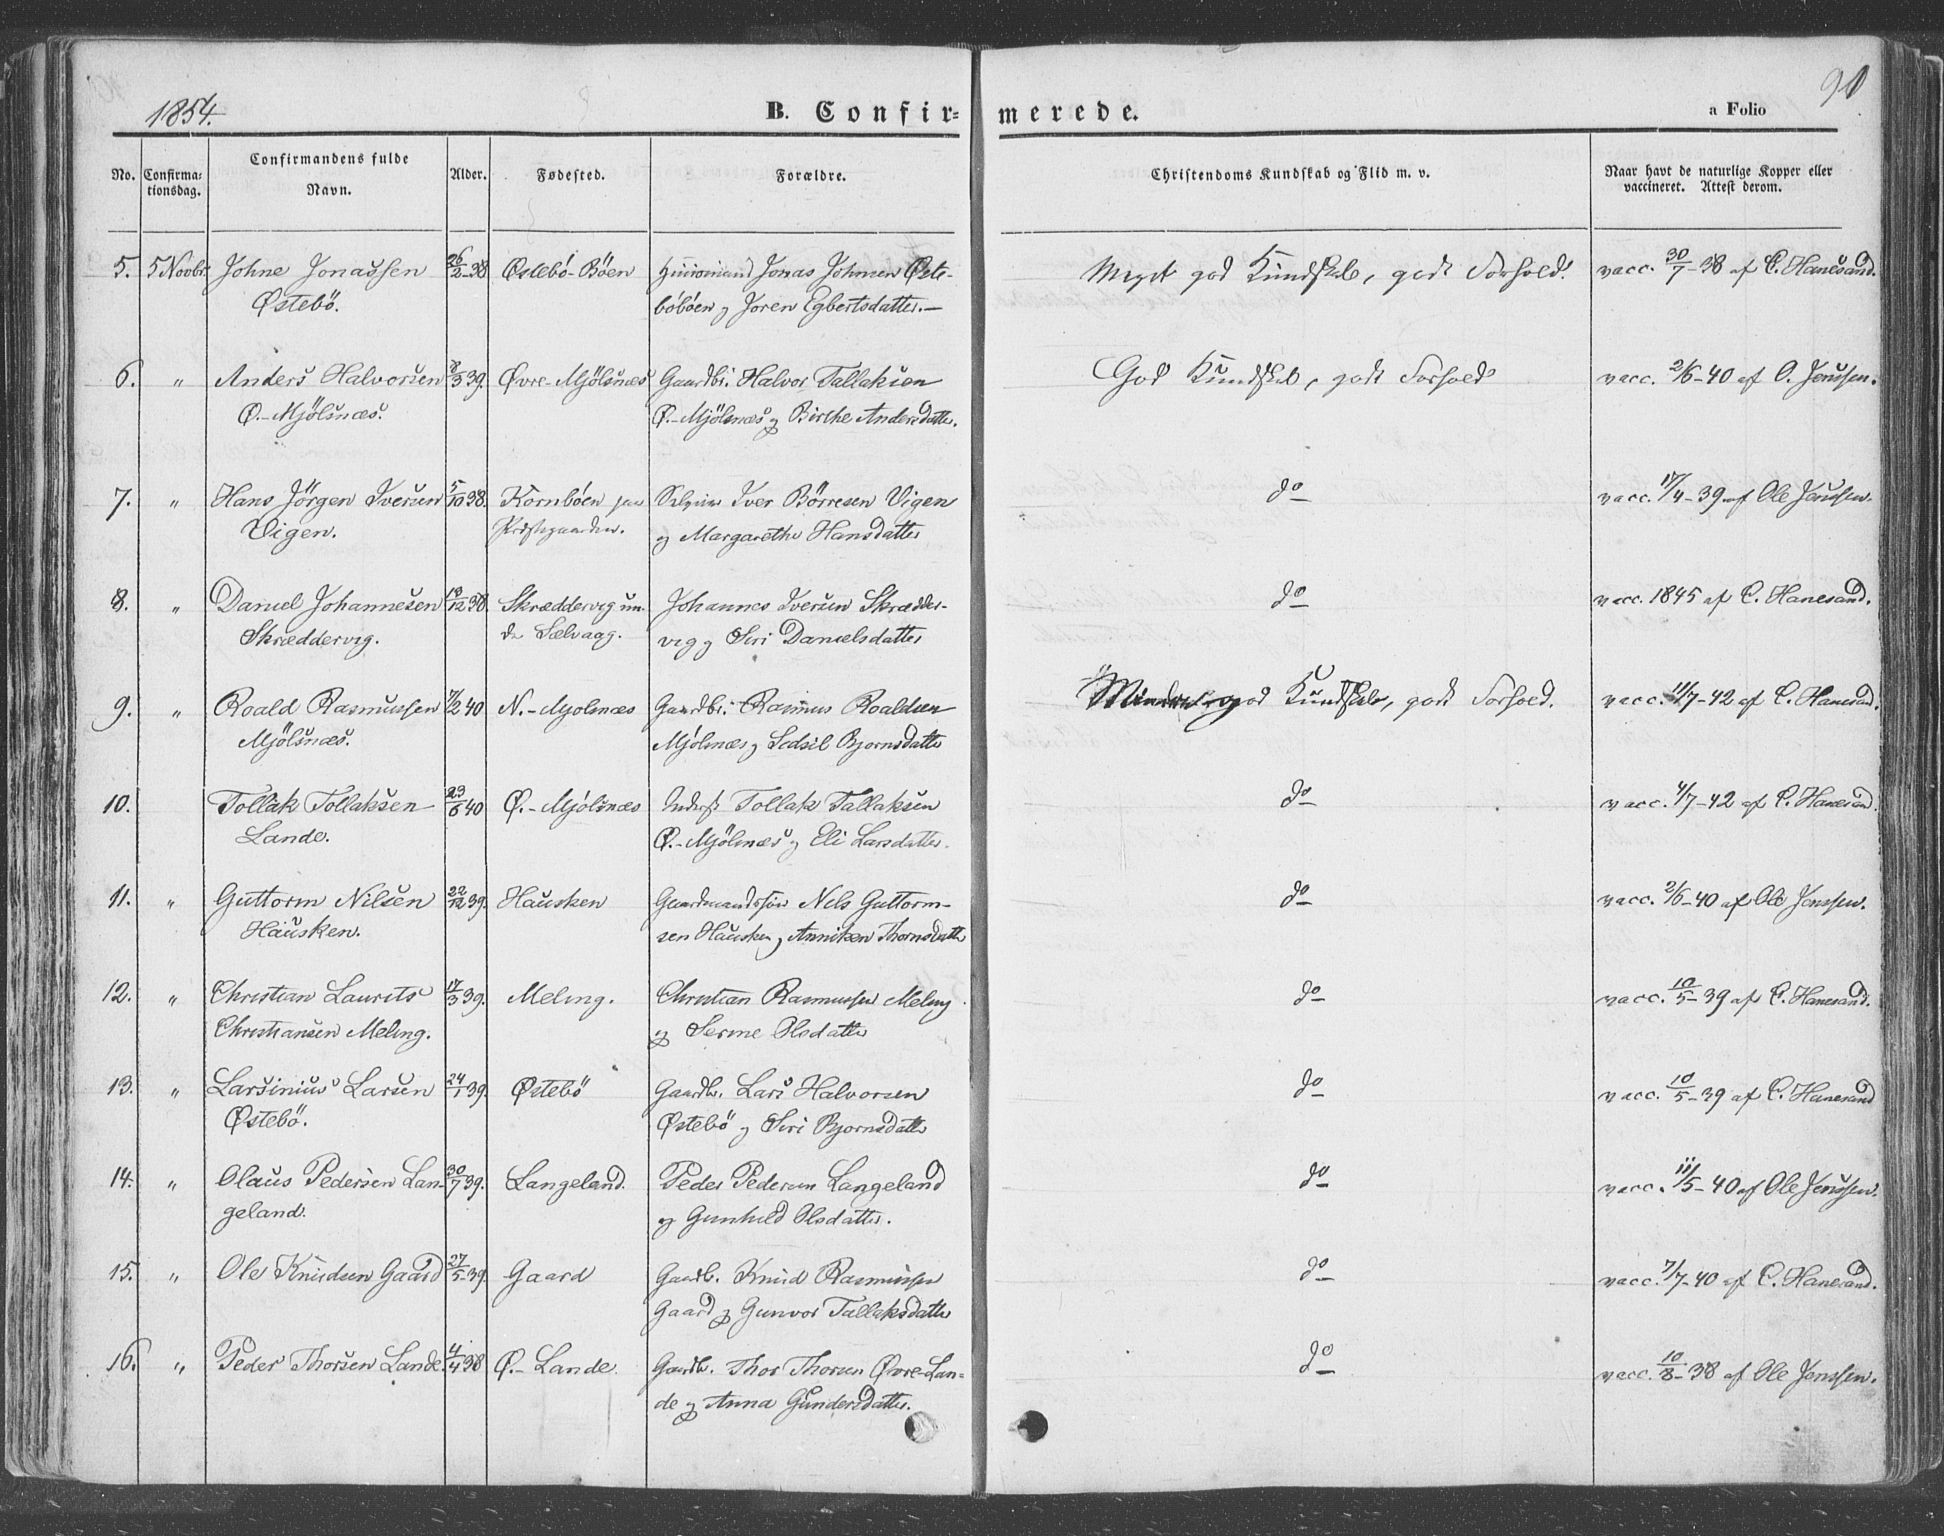 1854.
B. Confir=
merede.
a Folio
90
No.
Confirma=
tionsdag.
Confirmandens fulde
Navn.
Alder.
Fødested.
Forældre.
Christendoms Kundskab og Flid m. v.
Naar havt de naturlige Kopper eller
vaccineret. Attest derom.
5. 5 Novbr. Johne Jonassen 26/2-38 Østebö-Böen Jonas Johnsen Øste- Meget god Kundskab, godt Forhold. vacc. 30/7-38 af C. Hanesand.
Østebö. böböen og Joren Egbertsdatter.—
6. " Anders Halvorsen 8/3 39. Øvre-Mjölsnæs Gaardbr. Halvor Tallaksen God Kundskab, godt Forhold vacc. 2/6-40 af O. Jenssen.
Ø.-Mjölsnæs. Ø.-Mjölsnæs og Birthe Andersdatter.
7. " Hans Jörgen Iversen 5/10 38. Kornböen paa Iver Börresen Vigen do vacc. 17/4-39 af Ole Jenssen.
Vigen. Præstegaarden. og Margarethe Hansdatter
8. " Daniel Johannesen 13/12 38. Skræddervig un- Johannes Iversen Skrædder- do vacc. 1845 af C. Hanesand.
Skræddervig. der Sælvaag. vig og Siri Danielsdatter
9. " Roald Rasmussen 7/2 40 N.-Mjölsnæs Gaardbr. Rasmus Roaldsen god Kundskab, godt Forhold. vacc. 11/7-42 af C. Hanesand.
Mjölsnæs. Mjölsnæs og Sedsil Bjornsdatter
10. Tollak Tollaksen 23/6 40 Ø.-Mjölsnæs Inderst Tollak Tallaksen do vacc. 4/7-42 af C. Hanesand.
Lande. Ø.-Mjölsnæs og Eli Larsdatter.
11. " Guttorm Nilsen 22/12 39. Hausken Gaardmandssön Nels Guttorm- do vacc. 2/6-40 af Ole Jenssen.
Hausken. sen Hausken og Anniken Thornsdatter
12. " Christian Laurits 17/3 39. Meling. Christian Rasmussen Meling do vacc. 10/5-39 af C. Hanesand.
Christiansen Meling. og Serine Olsdatter
13. " Larsinius Larsen 24/1 39. Østebö Gaardbr. Lars Halvorsen do vacc. 10/5-39 af C. Hanesand
Østebö. Østebö og Siri Bjornsdatter
14. " Olaus Pedersen Lan- 30/7 39. Langeland. Peder Pedersen Langeland do vacc. 11/5-40 af Ole Jenssen.
geland. og Gunhild Olsdatter.
15. " Ole Knudsen Gaard 27/5-39. Gaard Gaardb. Knud Rasmussen do vacc. 7/7-40 af C. Hanesand.
Gaard og Gunvor Tallaksdatter
16. " Peder Thorsen Lande. 4/4 38 Ø.-Lande. Gaardb. Thor Thorsen Øvre-Lan= do vacc. 10/8-38 af Ole Jenssen.
de og Anna Gundersdatter.